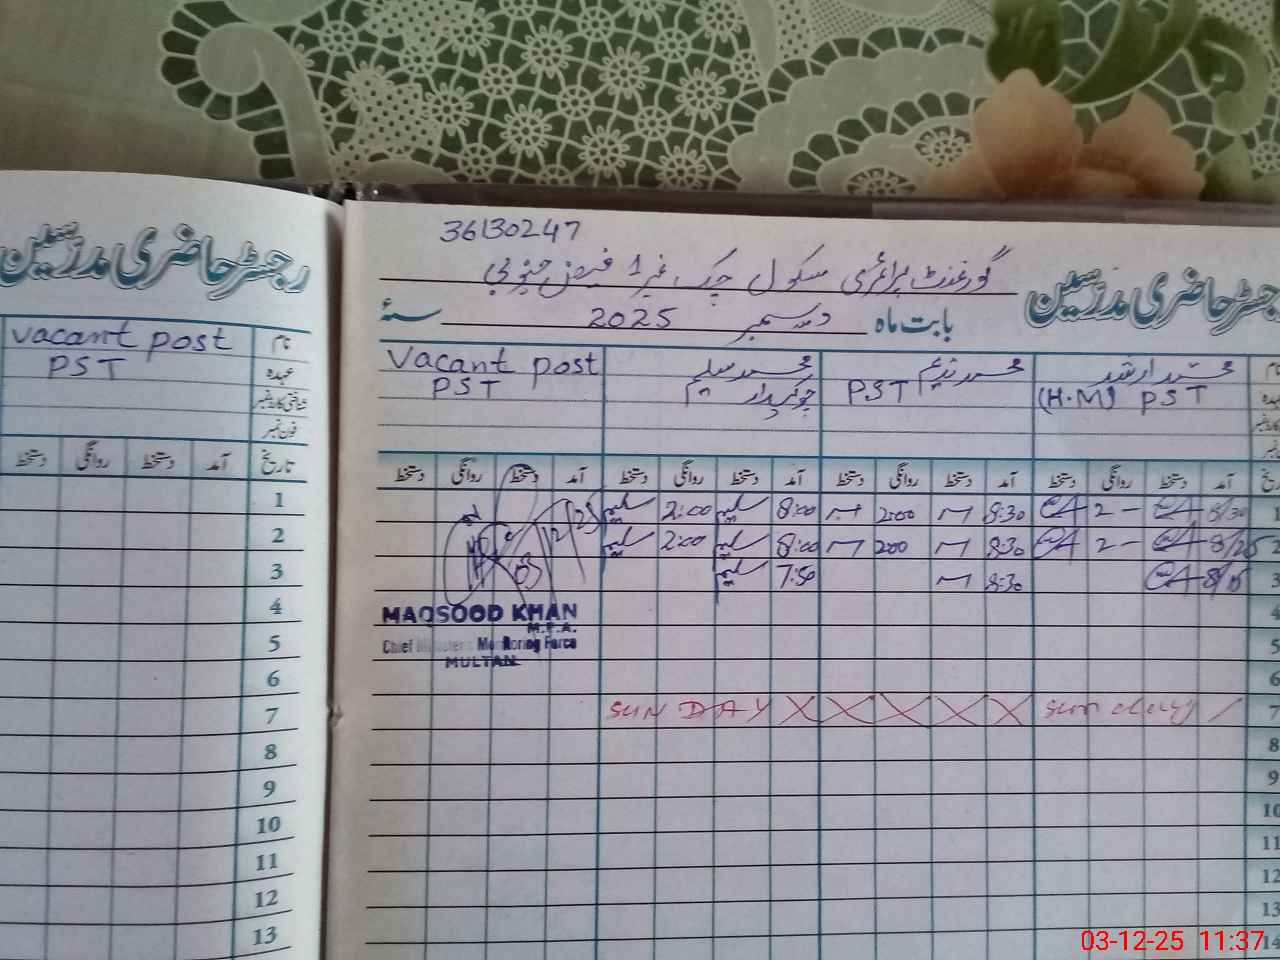 رجسٹر حاضری مدرسین
vacant post نام
PST عہدہ
شناختی کارڈ نمبر
فون نمبر
دستخط روانگی دستخط آمد تاریخ
1
2
3
4
5
6
7
8
9
10
11
12
13
36130247
گورنمنٹ پرائمری سکول چک نمبر 1 فیض جنوبی
رجسٹر حاضری مدرسین
بابت ماہ دسمبر 2025 سنۂ
نام محمد ارشد محمد ندیم محمد سلیم vacant post
عہدہ PST (H.M) PST چوکیدار PST
آمد دستخط روانگی دستخط آمد دستخط روانگی دستخط آمد دستخط روانگی دستخط آمد دستخط روانگی دستخط
1 8/30 2 - 8:30 2:00 8:00 سلیم 2:00 سلیم
2 8/25 2 - 8:30 200 8:00 سلیم 2:00 سلیم
3 8/15 8:30 7:50 سلیم
03/12/25
4
MAQSOOD KHAN
M.E.A.
5
Chief Minister's Monitoring Force
MULTAN
6
7 Sunday SUNDAY
8
9
10
11
12
13
14
03-12-25 11:37